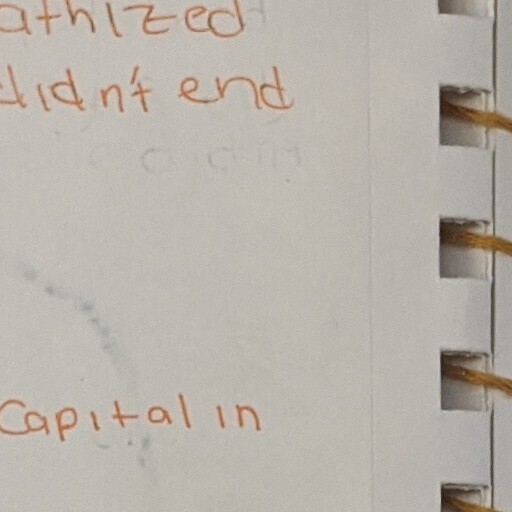 athized
didn't end
Capital in